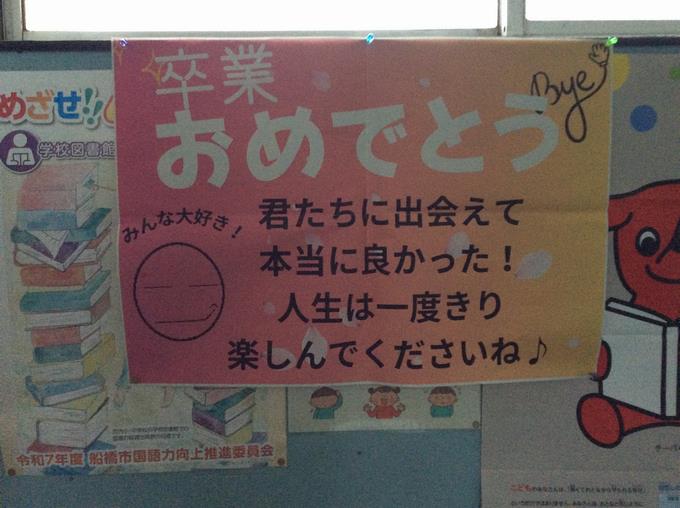 卒業
おめでとう
Bye
みんな大好き！
君たちに出会えて
本当に良かった！
人生は一度きり
楽しんでくださいね♪
めざせ!!
学校図書館
令和7年度 船橋市国語力向上推進委員会
チーバ
こども